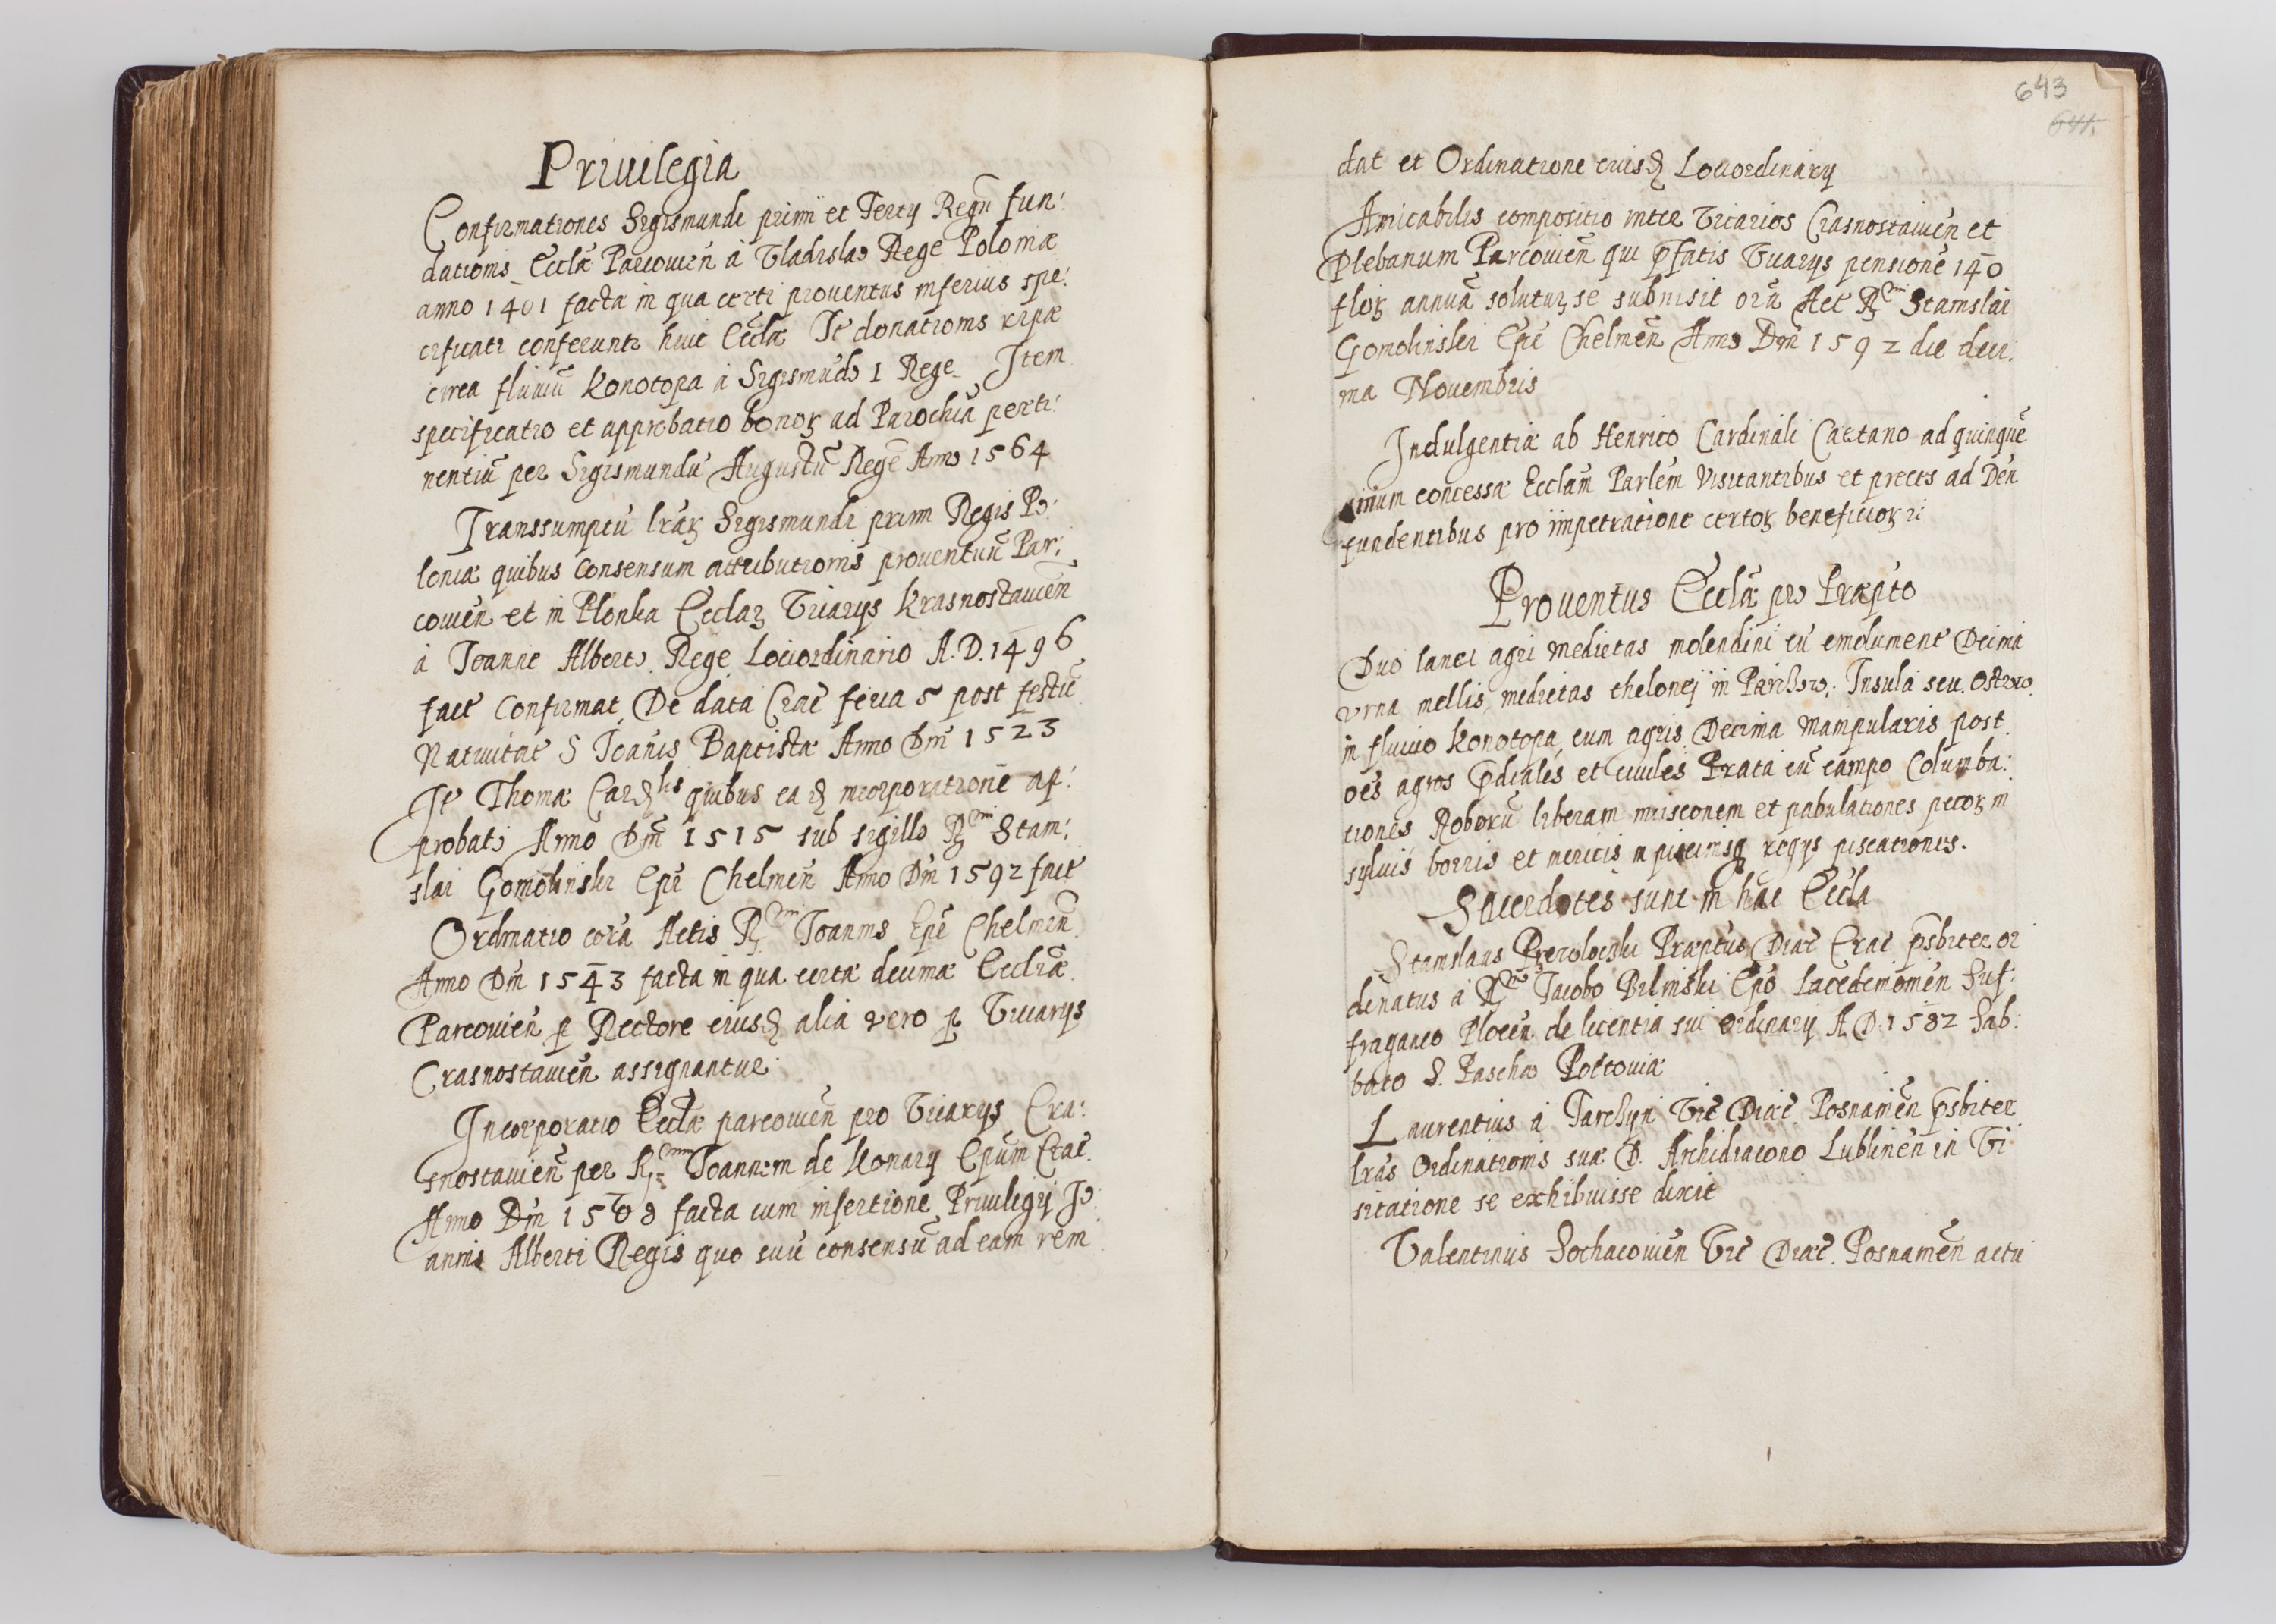 Priuilegia
Confirmationes Sigismundi primi et Tertÿ Regū fun:
dationis Eccľæ Parcouień à Vladislao Rege Poloniæ
anno 1401 facta in qua certi prouentus inferius spe:
cificati conferuntr huic Eccľæ Itē donationis ripæ
circa fluuiū Konotopa à Sigismūdo I Rege Item
specificatio et approbatio bonoꝝ ad Parochiā perti:
nentiū per Sigismundū Augustū Regē Anno 1564
Transsumptū lrāꝝ Sigismundi primi Regis Po:
loniæ quibus Consensum attributionis prouentuū Par:
couień et in Plonka Eccľaꝝ Vicarÿs Krasnostauień
à Joanne Alberto Rege Louiordinario A.D. 1496
fact Confirmat De data Crac feria 5 post festū
Natiuitat S Joānis Baptistæ Anno Dnī 1523
Itē Thomæ Cardlis quibus eand incorporationē ap:
probat Anno Dnī 1515 sub sigillo Rmi Stanis:
slai Gomolinski Epī Chelmeń Anno Dnī 1592 fact
Ordinatio corā Actis Rmi Joannis Epī Chelmeń
Anno Dnī 1543 facta in qua certæ decimæ Eccľiæ
Parcouień p̱ Rectore eiusd alia vero p̱ Vicarÿs
Crasnostauień assignantur
Incorporatio Eccľæ parcouień pro Vicarÿs Cra:
snostauień per Rmum Joannem de Konarÿ Epūm Crac
Anno Dnī 1508 facta cum insertione Priuilegÿ Jo:
annis Alberti Regis quo suū consensū ad eam rem
643
dat et Ordinatione eiusd Louordinarÿ
Amicabilis compositio inter Vicarios Crasnostauień et
Plebanum Parcouień qui p̄fatis Vicarÿs pensionē 140
floꝝ annuā soluturꝝ se submisit corā Act Rmi Stanislai
Gomolinski Epī Chelmeń Anno Dnī 1592 die deci:
ma Nouembris
Indulgentiæ ab Henrico Cardinali Caetano ad quinquē
nium concessæ Eccľam Parľem visitantibus et preces ad Deū
fundentibus pro impetratione certoꝝ beneficioꝝ
Prouentus Eccľæ pro Præpto
Duo lanei agri medietas molendini cū emolument Decimi
vrna mellis, medietas thelonej in Parcżow, Insula seu Ostrow
in fluuio Konotopa, cum agris Decima manipularis post
oēs agros p̄diales et ciuiles Prata cū campo Columba:
tiones Roborū liberam missionem et pabulationes pecoꝝ in
syluis borris et mericis n piscinisq regÿs piscationes.
Sacerdotes sunt in hac Eccľa
Stanslaus Præptus Diæc Crac p̄sbiter or
dinatus à Rmo Jacobo Bilinski Epō Lacedemonień Suf:
fraganeo Ploceń de licentia sui ordinarÿ A.D. 1582 Sab:
bato S. Paschæ Poltouiæ
Laurentius à Tarcżyn Vic Diæc Posnanień p̄sbiter
lrās Ordinationis suæ D. Archidiacono Lublineń in Vi
sitatione se exhibuisse dixit
Valentinus Sochacouień Vic Diæc. Posnanień actu